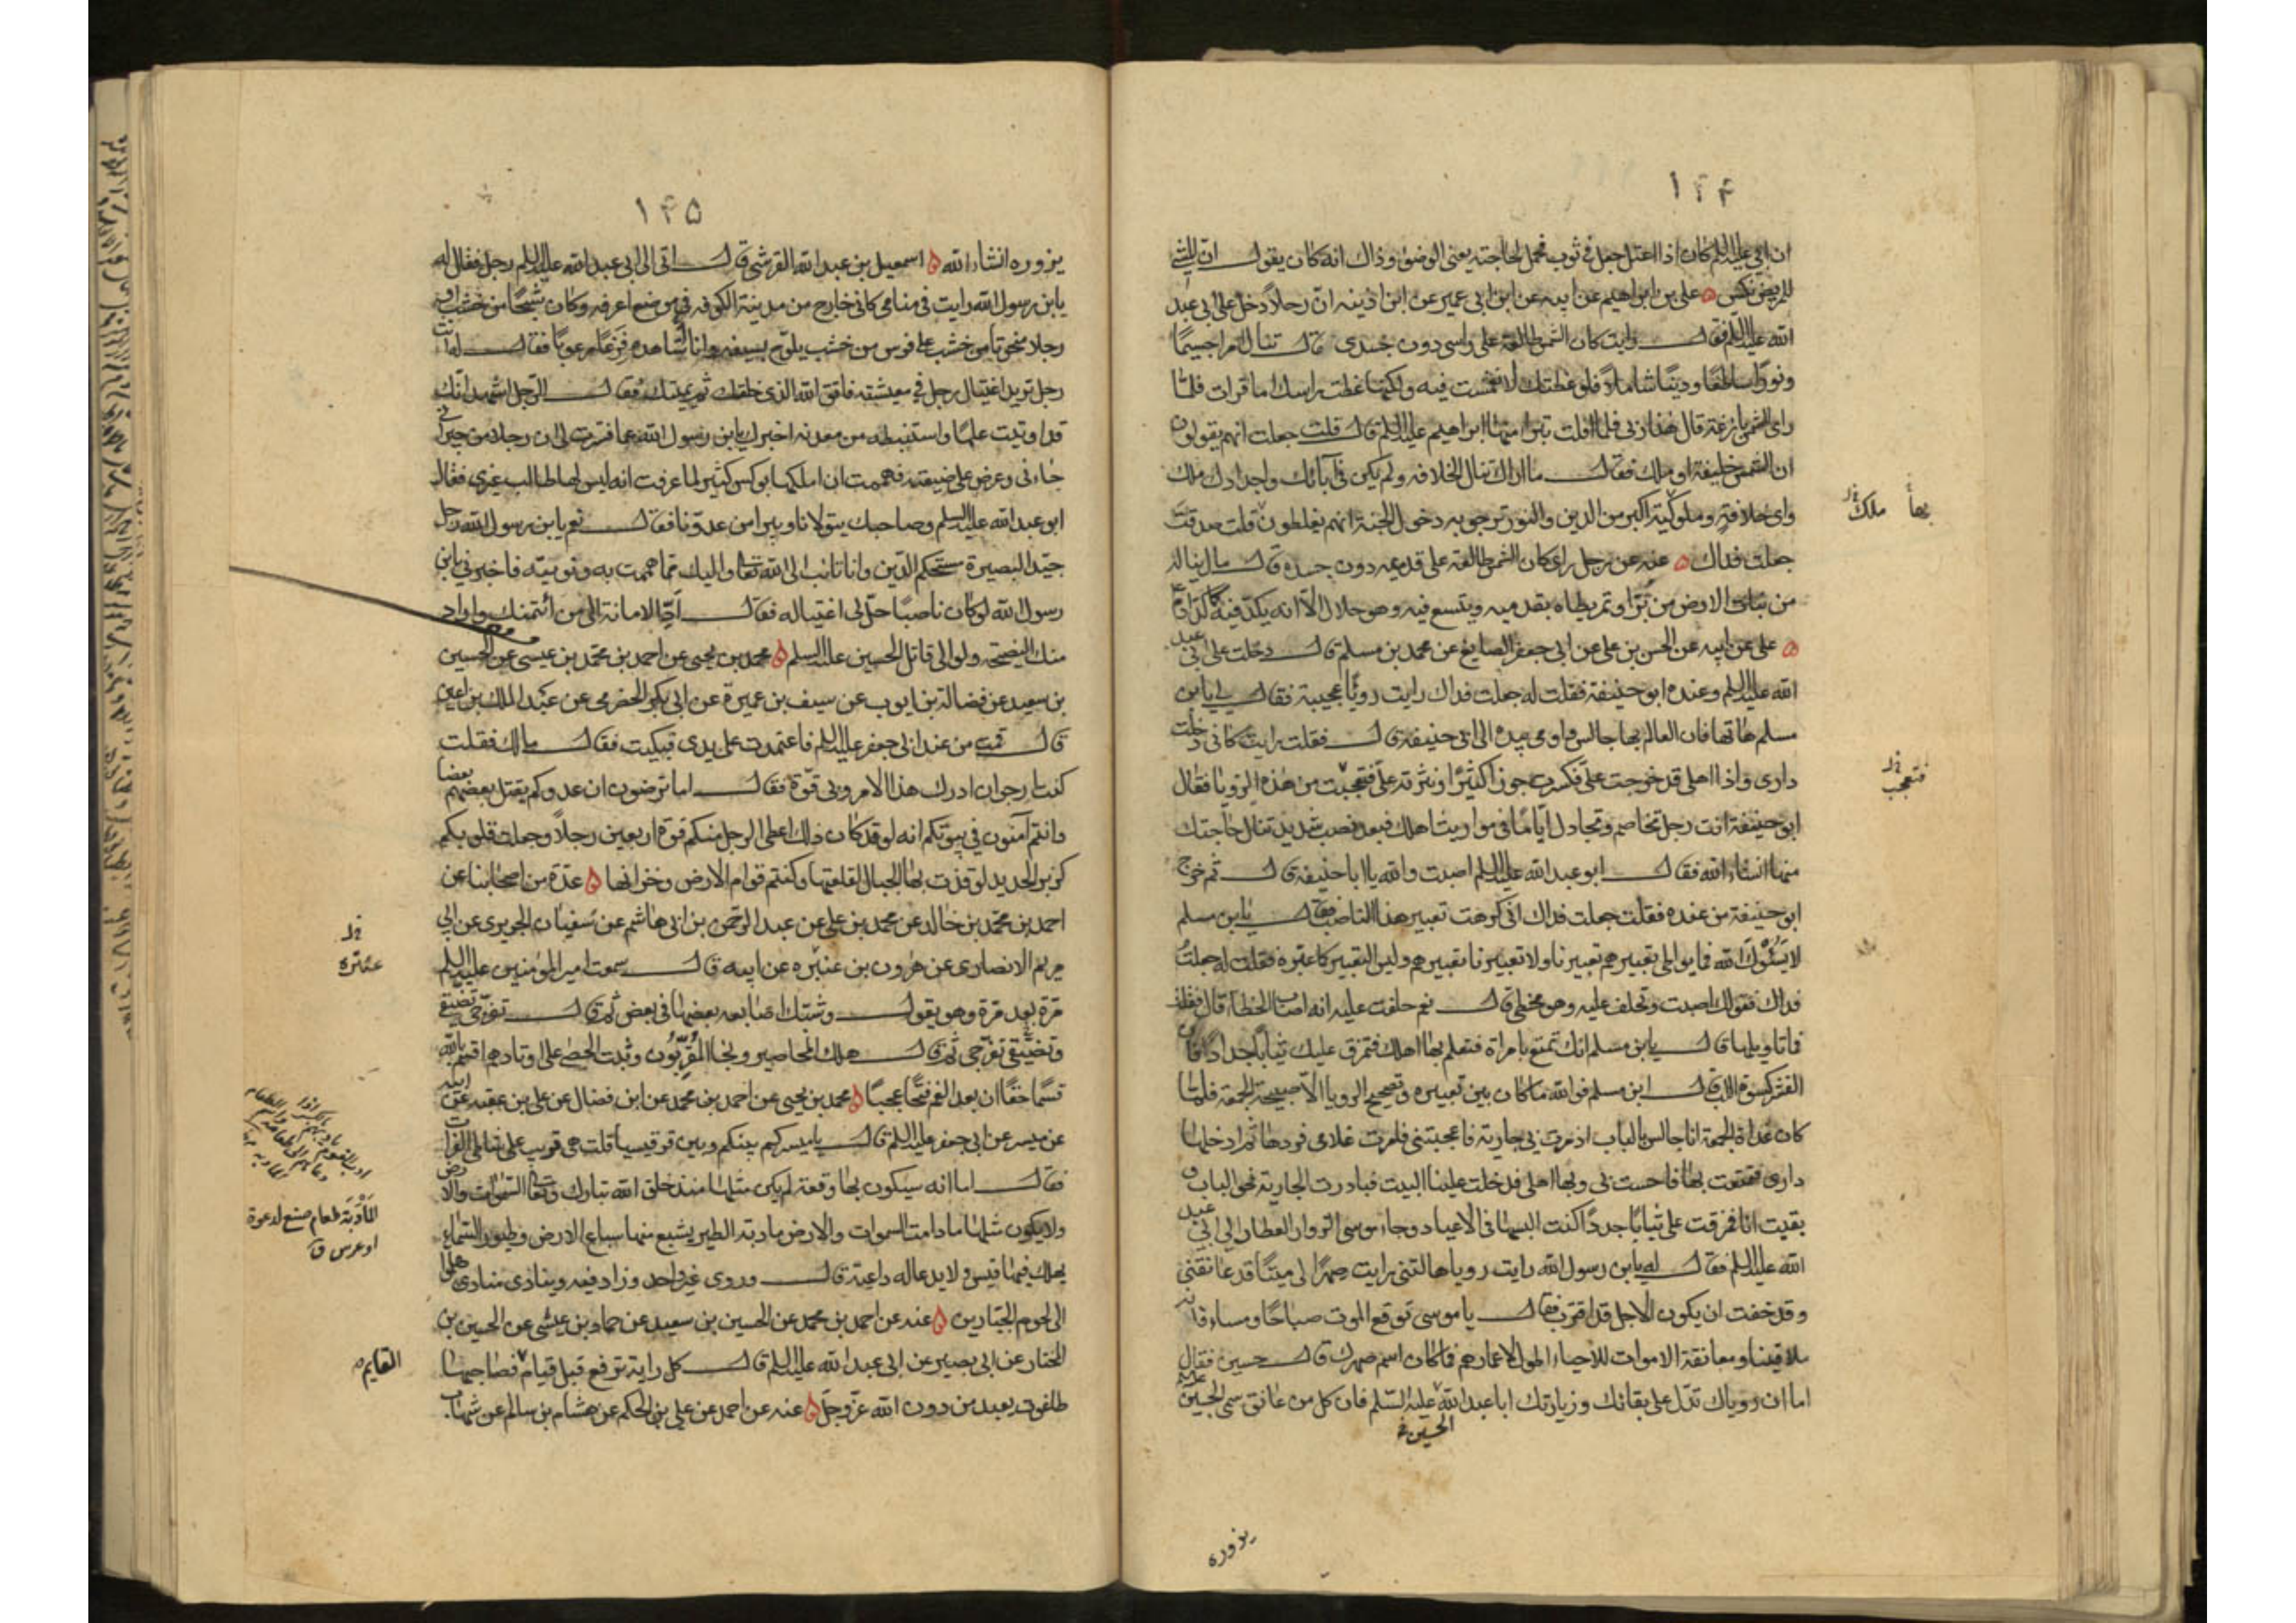 ١۴۴
ان ابي عليه السلم كان اذا اعتل جعل في ثوب فحمل لحاجته يعني الوضوء وذاك انه كان يقول ان المشي
للمريض نكس علي بن ابراهيم عن ابيه عن ابن ابي عمير عن ابن اذينه ان رجلاً دخل على ابي عبد
الله عليه السلم فقال رايت كان الشمس طالعة على راسي دون جسدي قال تنال امرا جسيمًا
ونورًا ساطعًا ودينًا شاملا فلو غطتك لانغمست فيه ولكنها غطت راسك اما قرات فلما
راى الشمس بازغة قال هذا ربي فلما افلت تبرا منها ابراهيم عليه السلم قال قلت جعلت انهم يقولون
ان الشمس خليفة او ملك فقال ما اراك تنال الخلافه ولم يكن في آبائك واجدادك ملك
واى خلافةٍ وملوكية اكبر من الدين والنور ترجو به دخول الجنة انهم يغلطون قلت صدقت
جعلت فداك عنه عن رجل راى كان الشمس طالعة على قدميه دون جسده قال مال يناله
من نبات الارض من بُرّ او تمر يطاه بقدميه ويتسع فيه وهو حلال الا انه يكد فيه كما كد ادم ع
علي عن ابيه عن الحسن بن علي عن ابي جعفر الصايغ عن محمد بن مسلم قال دخلت على ابي عبد
الله عليه السلم وعنده ابو حنيفة فقلت له جعلت فداك رايت رويًا عجيبة فقال لي يابن
مسلم هاتها فان العالم بها جالس واومى بيده الى ابي حنيفة قال فقلت رايت كاني دخلت
دارى واذا اهلي قد خرجت علي فكسرت جوزا كثيرًا ونثرته علي فتعجبت من هذه الرويا فقال
ابو حنيفة انت رجل تخاصم وتجادل ايامًا في مواريث اهلك فبعد نصب شديد تنال حاجتك
منها انشاء الله فقال ابو عبد الله عليه السلم اصبت والله يا ابا حنيفة قال ثم خرج
ابو حنيفة من عنده فقلت جعلت فداك اني كرهت تعبير هذا الناصب فقال يا بن مسلم
لا يَسُؤْكَ الله فما يواطي تعبيرهم تعبيرنا ولا تعبيرنا تعبيرهم وليس التعبير كما عبّره فقلت له جعلت
فداك فقولك اصبت وتحلف عليه وهو مخطي قال نعم حلفت عليه انه اصاب الخطا قال فقلت
فما تاويلها قال يا بن مسلم انك تتمتع بامراة فتعلم بها اهلك فتمزق عليك ثيابًا جددًا فان
القشر كسوة اللب قال ابن مسلم فوالله ما كان بين تعبيره وتصحيح الرويا الا صبيحة الجمعة فلما
كان غداة الجمعة انا جالس بالباب اذ مرت بي جارية فاعجبتني فامرت غلامي فردها ثم ادخلها
دارى فتمتعت بها فاحست بي وبها اهلي فدخلت علينا البيت فبادرت الجارية نحو الباب و
بقيت انا فمزقت علي ثيابًا جددًا كنت البسها في الاعياد وجاء موسى الزوار العطار الى ابي عبد
الله عليه السلم فقال له يا بن رسول الله رايت رويا هالتني رايت صهرًا لي ميتًا قد عانقني
وقد خفت ان يكون الاجل قد اقترب فقال يا موسى توقع الموت صباحًا ومساء فانه
ملاقينا ومعانقة الاموات للاحياء اطول لاعمارهم فما كان اسم صهرك قال حسين فقال
اما ان روياك تدل على بقائك وزيارتك ابا عبد الله عليه السلم فان كل من عانق سمي الحسين
الحسين
يزوره
بها ملك
فتعجب
١۴۵
يزوره انشاء الله اسمعيل بن عبد الله القرشي قال اتى الى ابي عبد الله عليه السلم رجل فقال له
يا بن رسول الله رايت في منامي كاني خارج من مدينة الكوفه في موضع اعرفه وكان شبحًا من خشب او
رجلا منحوتا من خشب على فرس من خشب يلوّح بسيفه وانا اشاهده فزعًا مرعوبًا فقال له انت
رجل تريد اغتيال رجل في معيشته فاتق الله الذي خلقك ثم يميتك فقال الرجل اشهد انك
قد اوتيت علمًا واستنبطته من معدنه اخبرك يا بن رسول الله عما فسرت لي ان رجلا من جيراني
جاءني وعرض علي ضيعته فهممت ان املكها بوكس كثير لما عرفت انه ليس لها طالب غيري فقال
ابو عبد الله عليه السلم وصاحبك يتولانا ويبرا من عدونا فقال نعم يا بن رسول الله رجل
جيّد البصيرة مستحكم الدين وانا تائب الى الله تعالى واليك مما هممت به ونويته فاخبرني يا بن
رسول الله لو كان ناصبًا حل لي اغتياله فقال ادّ الامانة الى من ائتمنك واراد
منك النصيحة ولو الى قاتل الحسين عليه السلم محمد بن يحيى عن احمد بن محمد بن عيسى عن الحسين
بن سعيد عن فضالة بن ايوب عن سيف بن عميرة عن ابي بكر الحضرمي عن عبد الملك بن اعين
قال قمت من عند ابي جعفر عليه السلم فاعتمدت على يدى فبكيت فقال مالك فقلت
كنت ارجو ان ادرك هذا الامر وبي قوّة فقال اما ترضون ان عدوكم يقتل بعضهم بعضا
وانتم آمنون في بيوتكم انه لو قد كان ذلك اعطى الرجل منكم قوة اربعين رجلاً وجعلت قلوبكم
كزبر الحديد لو قذف بها الجبال لقلعتها وكنتم قوام الارض وخزانها عدّة من اصحابنا عن
احمد بن محمد بن خالد عن محمد بن علي عن عبد الرحمن بن ابي هاشم عن سفيان الجريرى عن ابي
مريم الانصارى عن هرون بن عنتره عن ابيه قال سمعت امير المؤمنين عليه السلم
مرة بعد مرة وهو يقول وشبك اصابعه بعضها في بعض ثم قال تفرّجي تضيقي
وتضيّقي تفرّجي ثم قال هلك المحاضير ونجا المُقرّبُون وثبت الحصى على اوتادهم اقسم بالله
قسمًا حقًا ان بعد الغم فتحًا عجبًا محمد بن يحيى عن احمد بن محمد عن ابن فضال عن علي بن عقبه عن ابيه
عن ميسر عن ابي جعفر عليه السلم قال يا ميسر كم بينكم وبين قرقيسيا قلت هي قريب على شاطي الفرات
فقال اما انه سيكون بها وقعة لم يكن مثلها منذ خلق الله تبارك وتعالى السموات والارض
ولا يكون مثلها ما دامت السموات والارض مادبة الطير يشبع منها سباع الارض وطيور السماء
يهلك فيها قيس ولا يدعا له داعية قال وروى غير واحد وزاد فيه وينادى مناد هلموا
الى لحوم الجبارين عنه عن احمد بن محمد عن الحسين بن سعيد عن حماد بن عيسى عن الحسين بن
المختار عن ابي بصير عن ابي عبد الله عليه السلم قال كل راية ترفع قبل قيام فصاحبها
طاغوت يعبد من دون الله عز وجل عنه عن احمد عن علي بن الحكم عن هشام بن سالم عن شهاب
المَأدُبَة طعام صنع لدعوة
او عرس ق
القايم